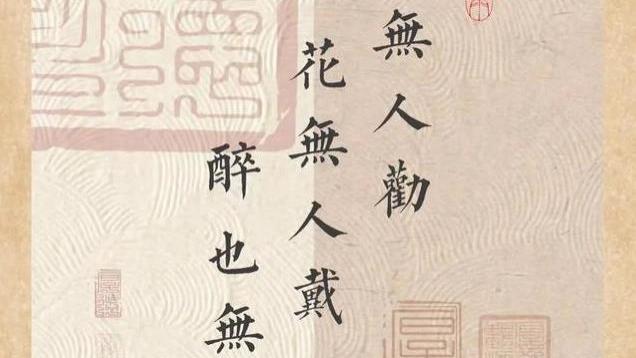 無人勸
花無人戴
醉也無